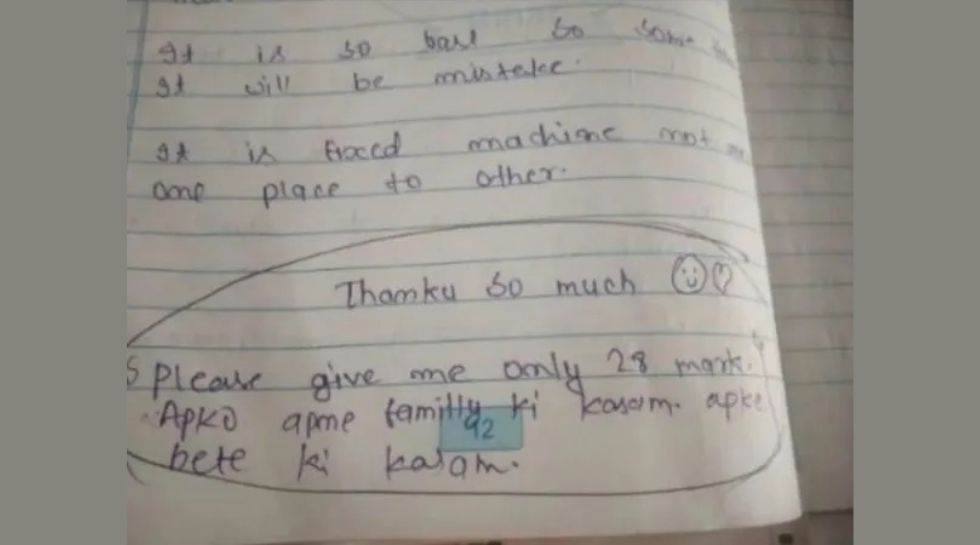 It is so base so some
It will be mistake.
It is traced machine not
one place to other.
Thanku so much
Please give me only 28 mark.
Apko apne familly ki kasam. apke
92
bete ki kasam.